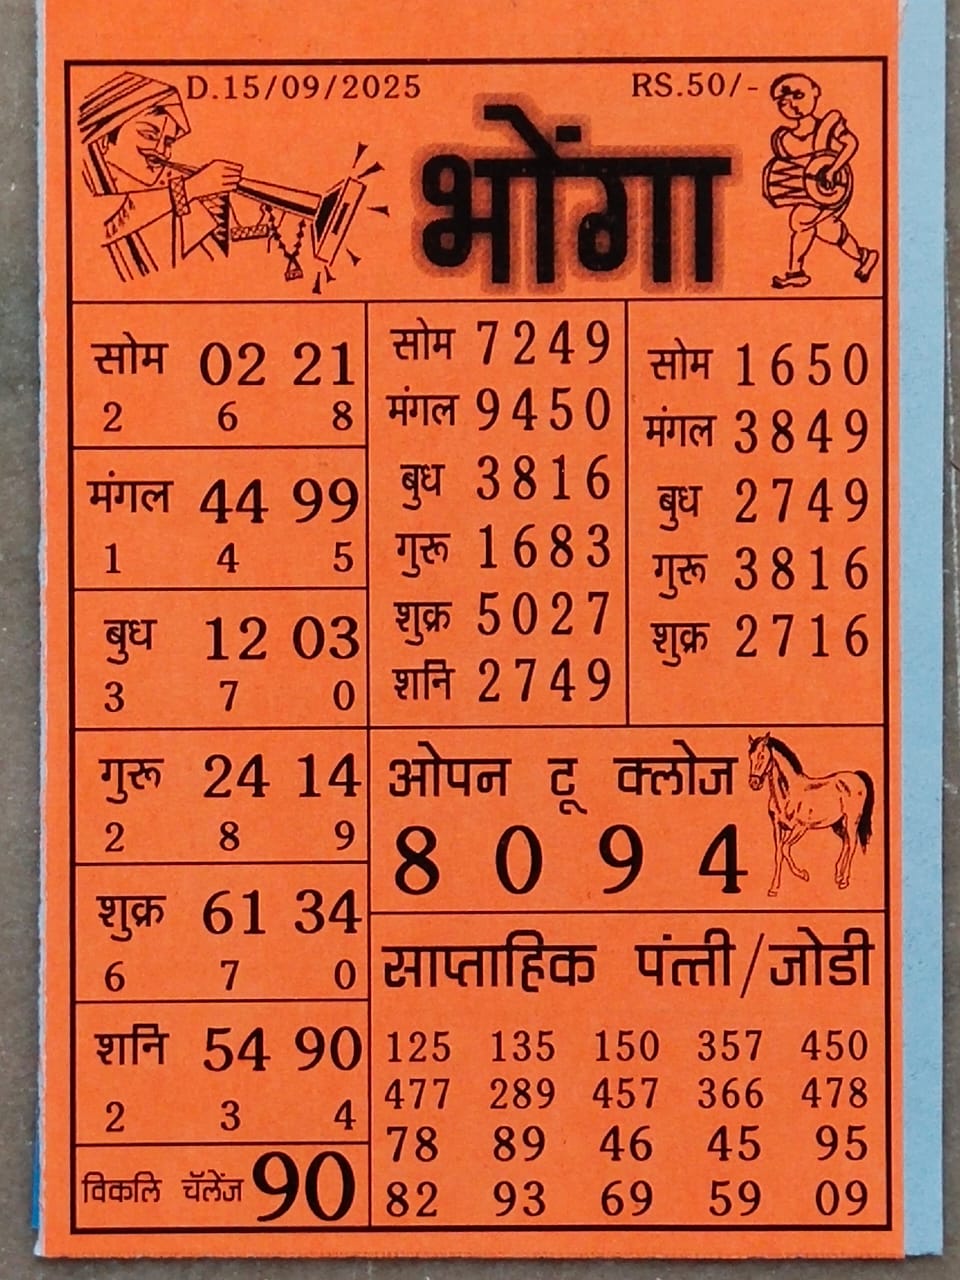 D.15/09/2025
RS.50/-
भोंगा
सोम 02 21
2 6 8
मंगल 44 99
1 4 5
बुध 12 03
3 7 0
गुरू 24 14
2 8 9
शुक्र 61 34
6 7 0
शनि 54 90
2 3 4
विकलि चॅलेंज 90
सोम 7249
मंगल 9450
बुध 3816
गुरू 1683
शुक्र 5027
शनि 2749
सोम 1650
मंगल 3849
बुध 2749
गुरू 3816
शुक्र 2716
ओपन टू क्लोज
8 0 9 4
साप्ताहिक पंत्ती/जोडी
125 135 150 357 450
477 289 457 366 478
78 89 46 45 95
82 93 69 59 09